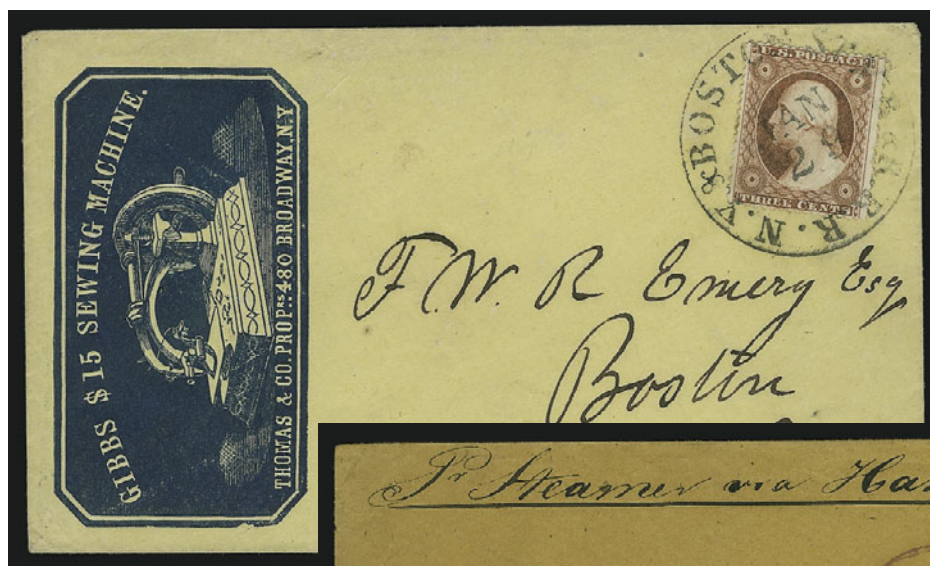 GIBBS $15 SEWING MACHINE.
THOMAS & CO. PROPRS. 480 BROADWAY, N.Y
N.Y & BOSTON
R.R.
U.S. POSTAGE
JAN
2
THREE CENTS
F. W. R Emery Esq
Boston
Pr Steamer via Ha